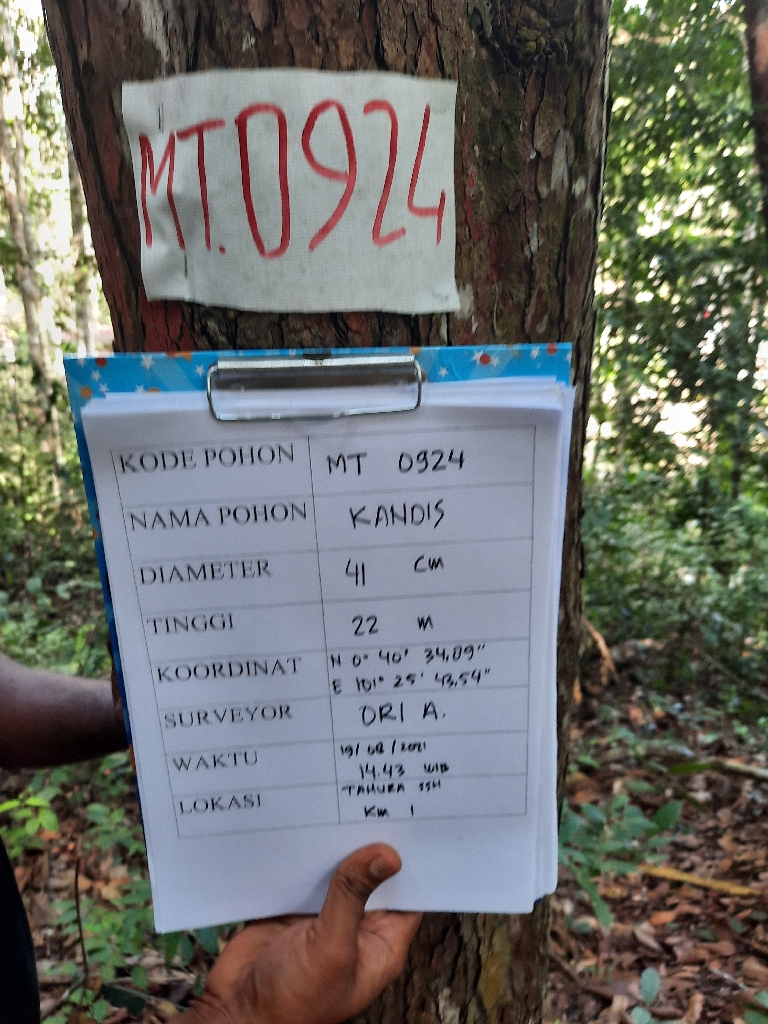 MT.0924
KODE POHON MT 0924
NAMA POHON KANDIS
DIAMETER 41 cm
TINGGI 22 m
KOORDINAT N 0° 40' 34,09"
E 101° 25' 43,54"
SURVEYOR ORI A.
WAKTU 19/08/2021
14.43 WIB
LOKASI TAHURA SSH
Km 1